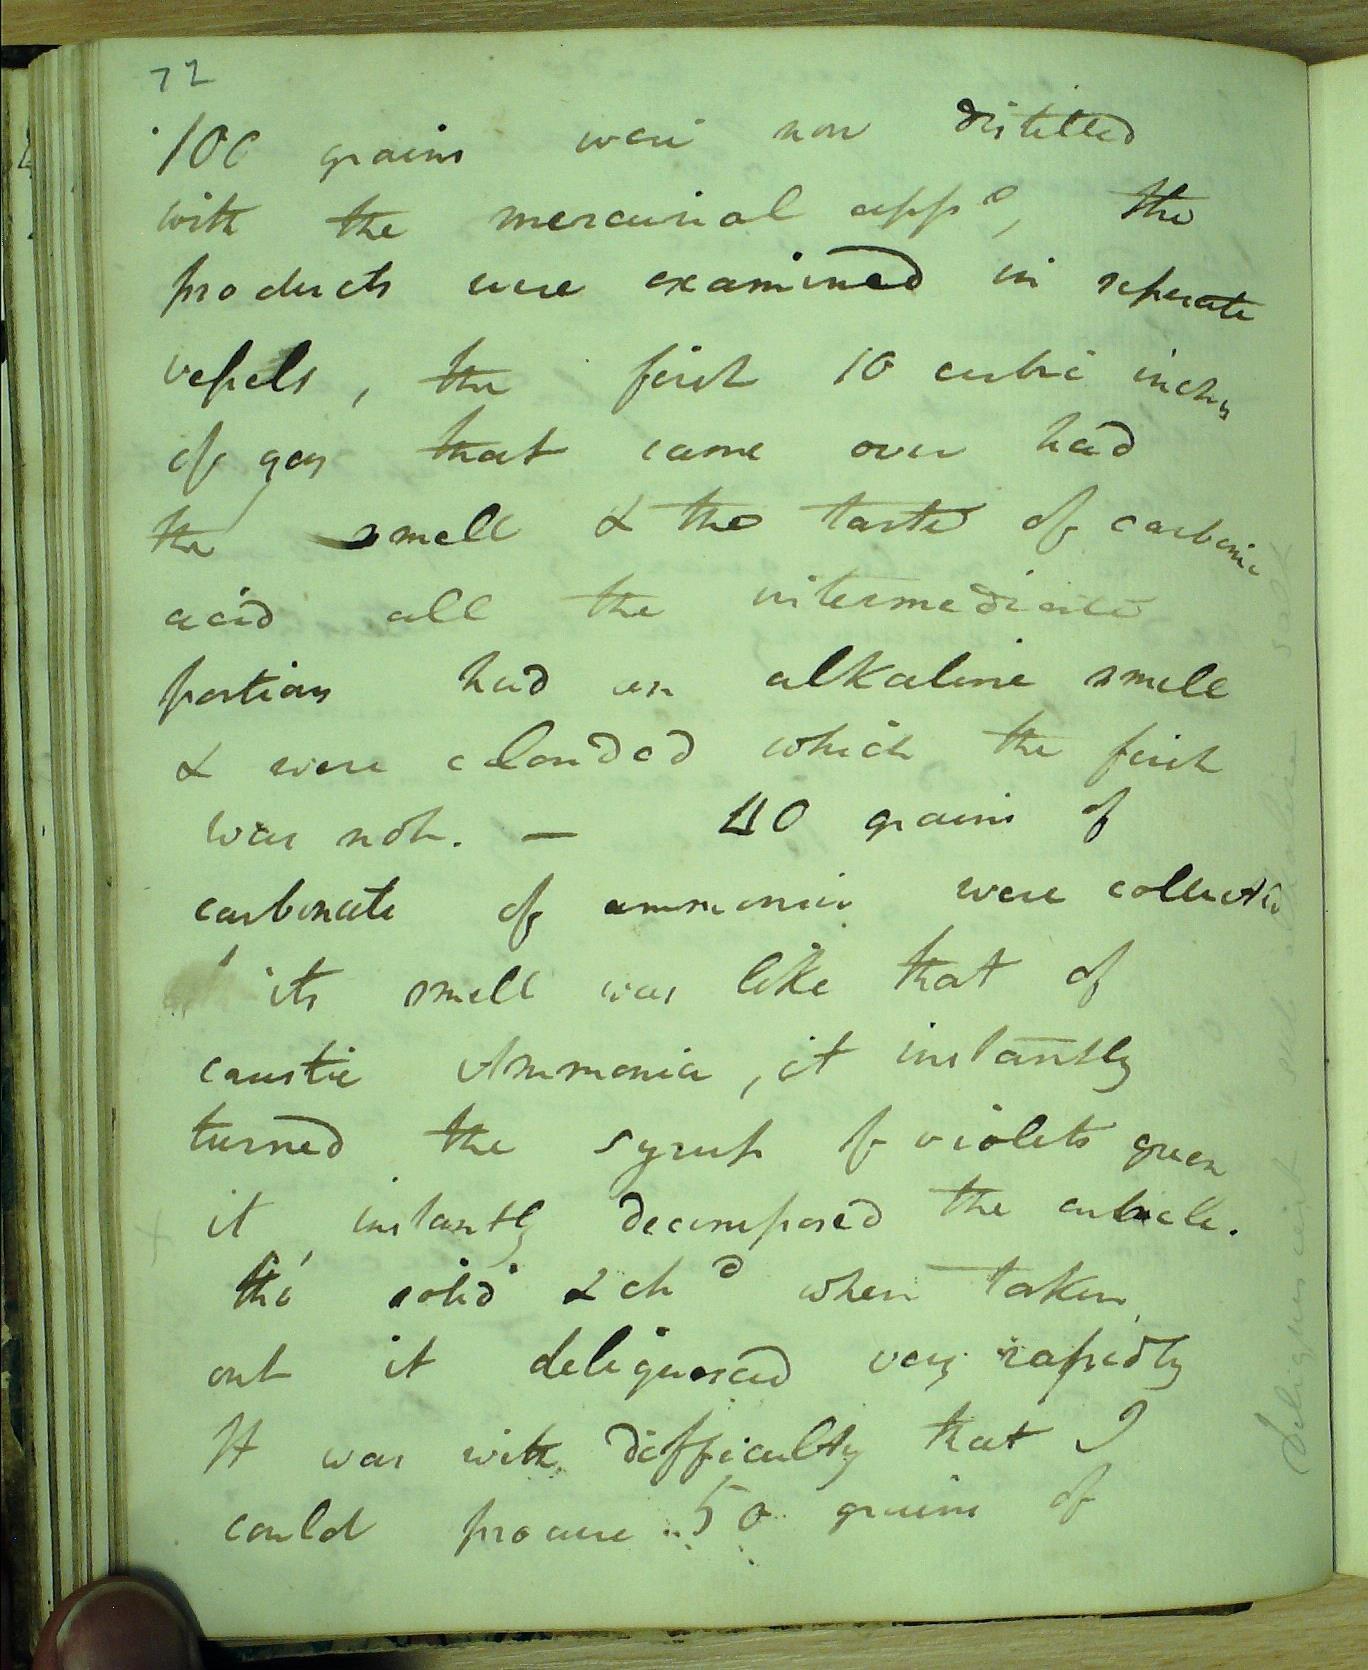 72
100 grains were now distilled
with the mercurial app^s, the
products were examined in seperate
vessels, the first 10 cubic inches
of gas that came over had
the smell & the taste of carbonic
acid all the intermediate
portions had an alkaline smell
& were clouded which the first
was not. — 40 grains of
carbonate of ammonia were collected
its smell was like that of
caustic Ammonia, it instantly
turned the syrup of violets green
it instantly decomposed the cuticle.
the solid when taken
out it deliquesced very rapidly
It was with difficulty that I
could procure 50 grains of
Deliquescent sub alkaline salt